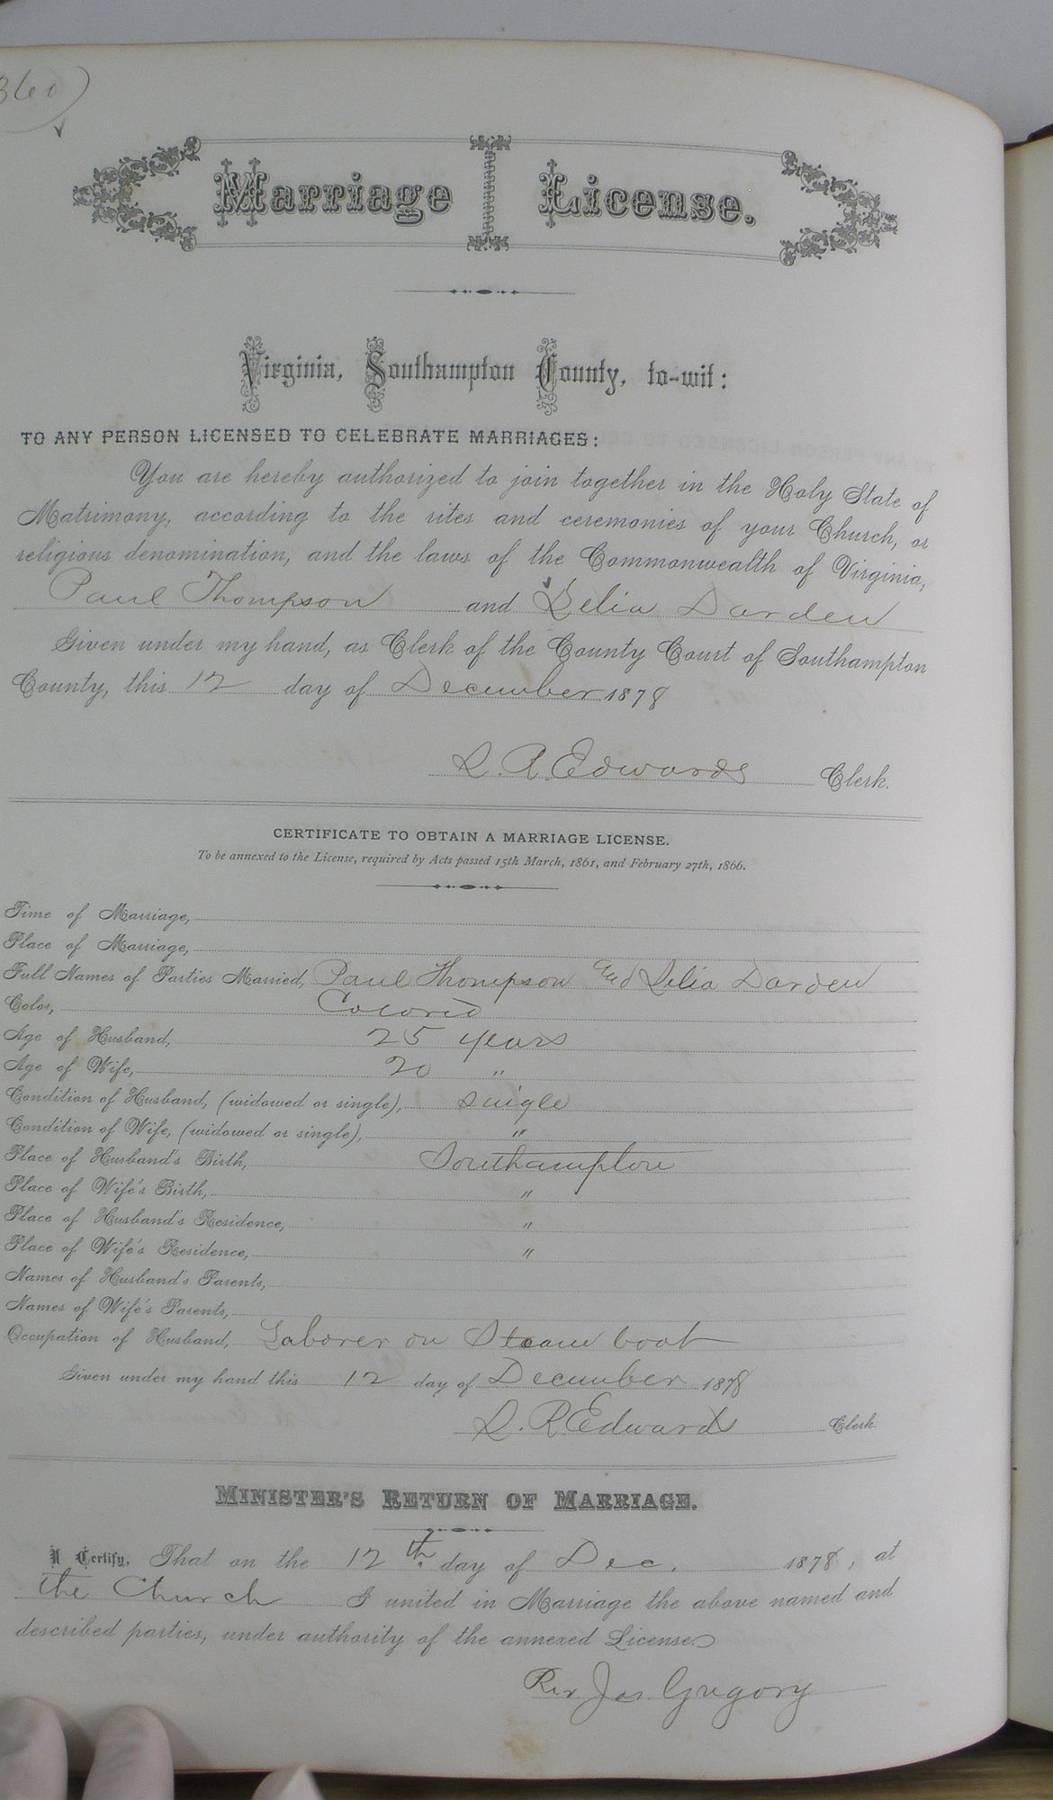 360)
Marriage License.
Virginia, Southampton County, to-wit:
TO ANY PERSON LICENSED TO CELEBRATE MARRIAGES:
You are hereby authorized to join together in the Holy State of
Matrimony, according to the rites and ceremonies of your Church, or
religious denomination, and the laws of the Commonwealth of Virginia,
Paul Thompson and Delia Darden
Given under my hand, as Clerk of the County Court of Southampton
County, this 12 day of December 1878
L. R. Edwards Clerk.
CERTIFICATE TO OBTAIN A MARRIAGE LICENSE.
To be annexed to the License, required by Acts passed 15th March, 1861, and February 27th, 1866.
Time of Marriage,
Place of Marriage,
Full Names of Parties Married, Paul Thompson and Delia Darden
Color, Colored
Age of Husband, 25 years
Age of Wife, 20 "
Condition of Husband, (widowed or single), single
Condition of Wife, (widowed or single), "
Place of Husband's Birth, Southampton
Place of Wife's Birth, "
Place of Husband's Residence, "
Place of Wife's Residence, "
Names of Husband's Parents,
Names of Wife's Parents,
Occupation of Husband, Laborer on Steam boat
Given under my hand this 12 day of December 1878
L. R. Edwards Clerk
MINISTER'S RETURN OF MARRIAGE.
I Certify, That on the 12th day of Dec. 1878, at
the Church I united in Marriage the above named and
described parties, under authority of the annexed License
Rev Jas. Gregory